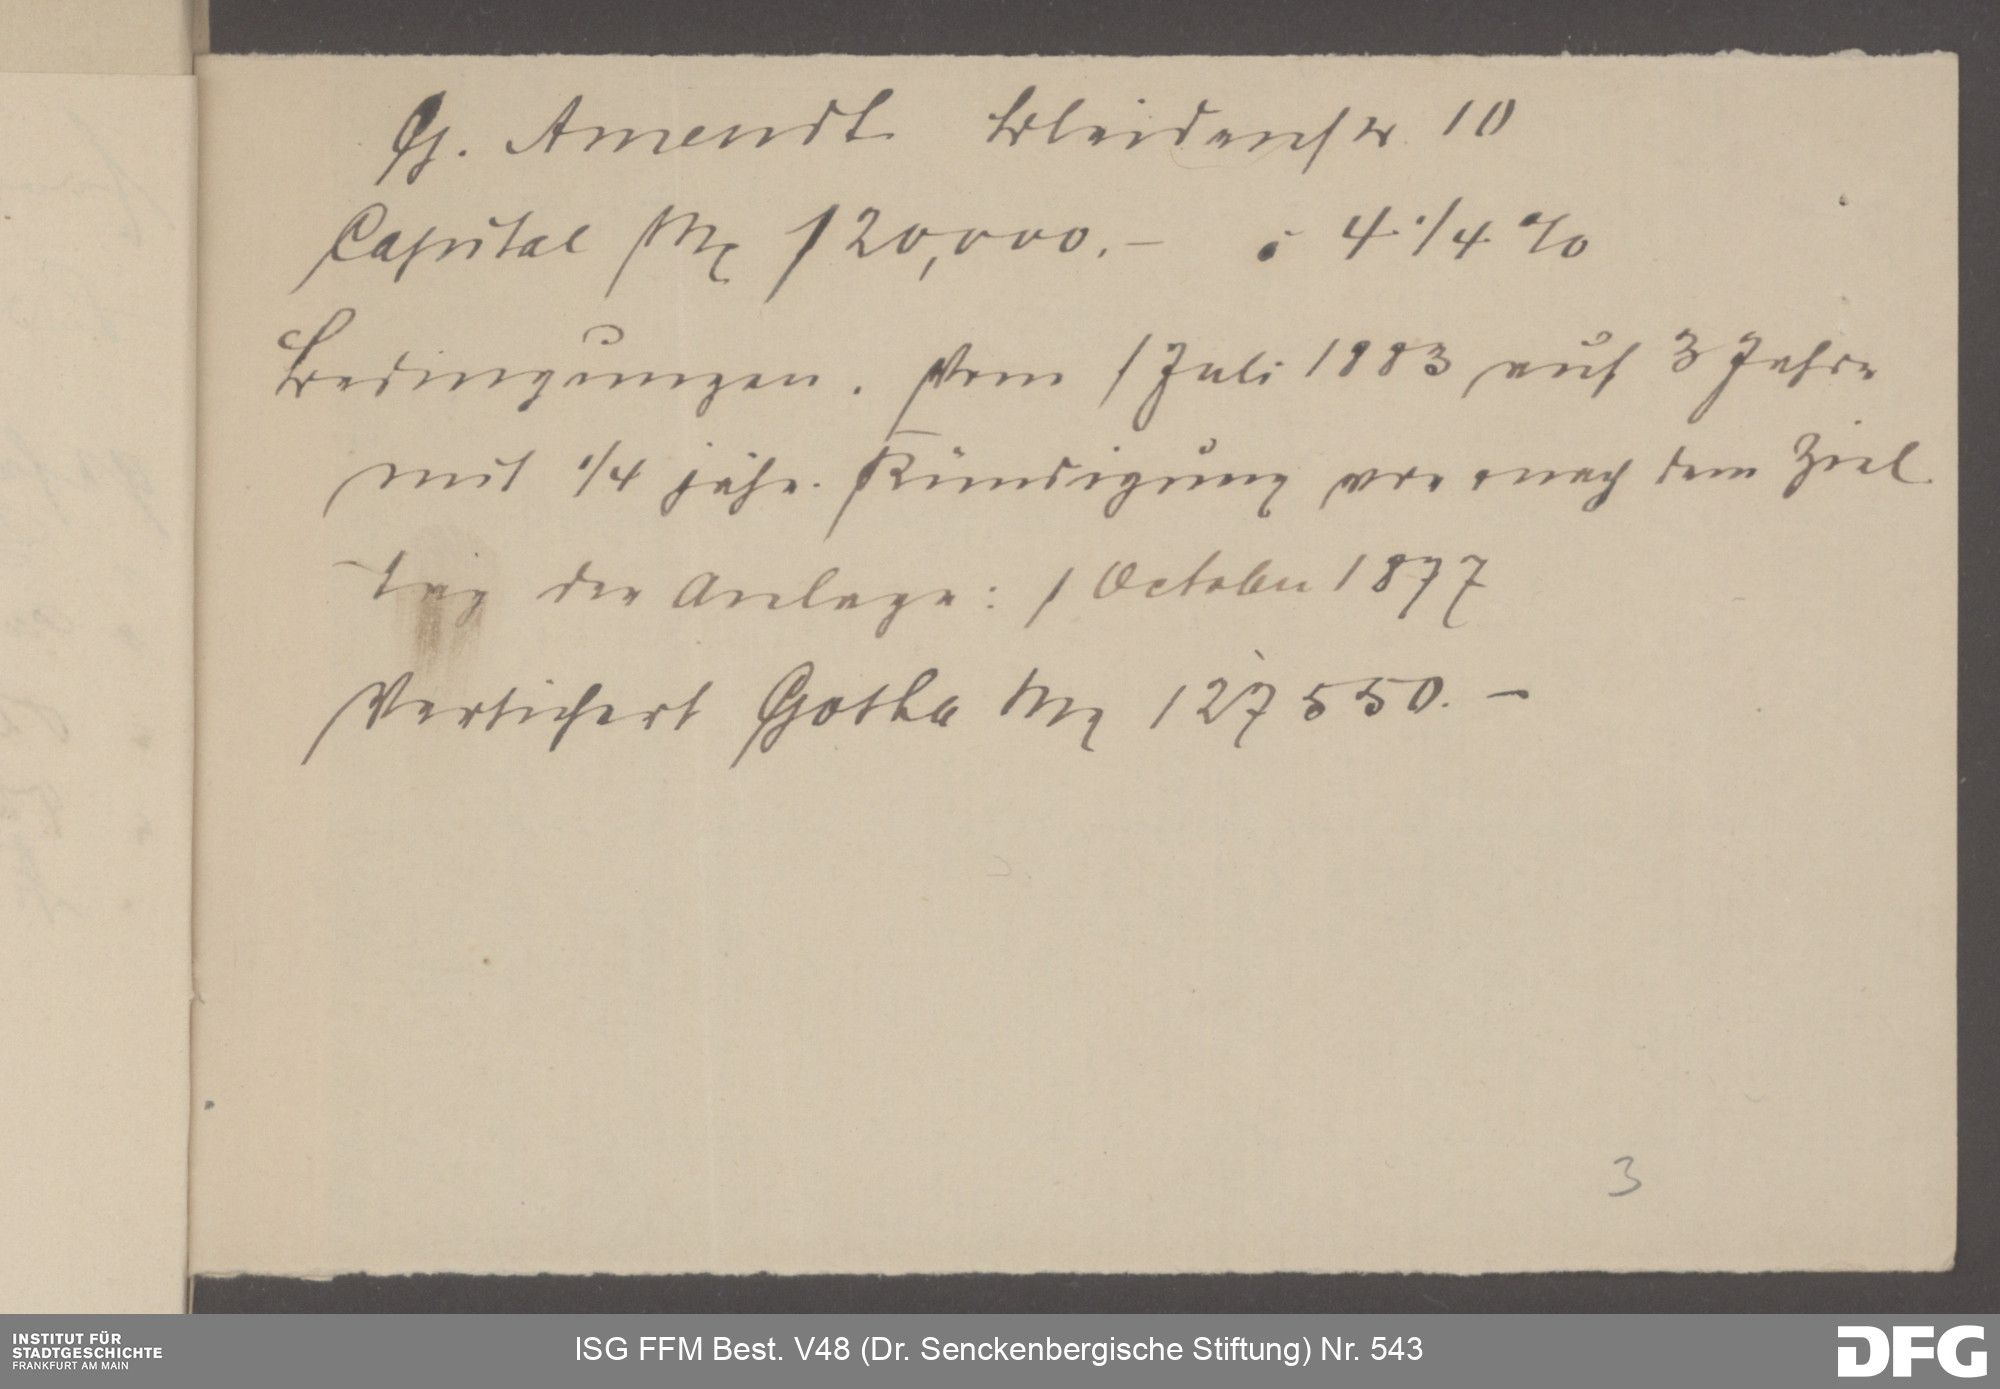 G. Amendt Bleidenstr 10
Capital Mk 120,000.— à 4 1/4 %
Bedingungen. Vom 1 Juli 1883 auf 3 Jahre
mit 1/4 jähr. Kündigung vor & nach dem Ziel
Tag der Anlage: 1 October 1877
Versichert Gotha Mk 127550.—
3
INSTITUT FÜR
STADTGESCHICHTE
FRANKFURT AM MAIN
ISG FFM Best. V48 (Dr. Senckenbergische Stiftung) Nr. 543
DFG